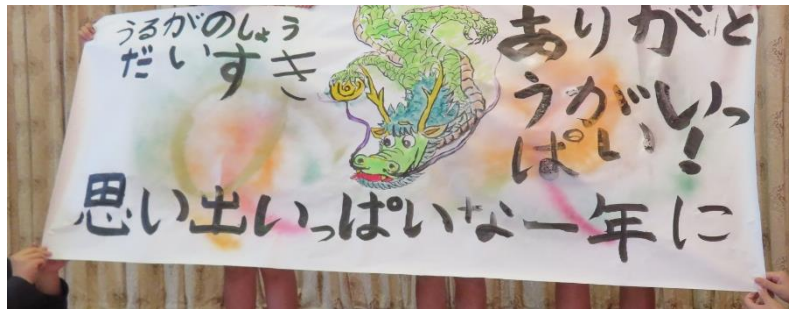 うるがのしょう
だいすき
ありがと
うがいっ
ぱい!
思い出いっぱいな一年に